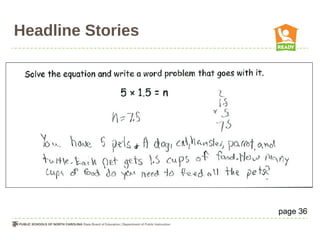 Headline Stories
READY
Solve the equation and write a word problem that goes with it.
5 × 1.5 = n
2
1.5
× 5
7.5
n=7.5
You have 5 pets. A dog, cat, hamster, parrot, and
turtle. Each pet gets 1.5 cups of food. How many
cups of food do you need to feed all the pets?
page 36
PUBLIC SCHOOLS OF NORTH CAROLINA State Board of Education | Department of Public Instruction